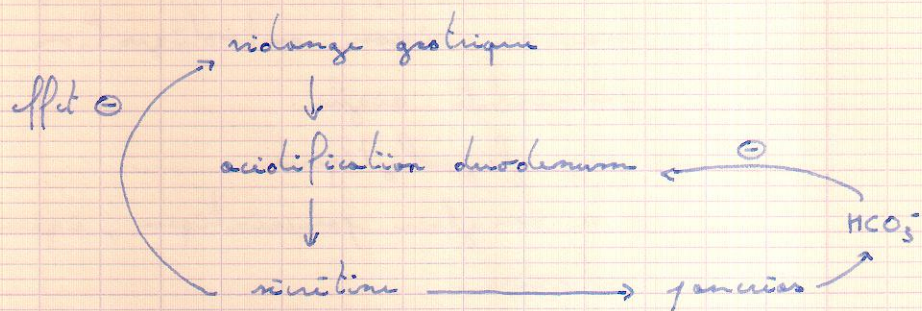 vidange gastrique
effet ⊖
↓
acidification duodenum ← ⊖
HCO₃⁻
↓
sécrétine → pancréas